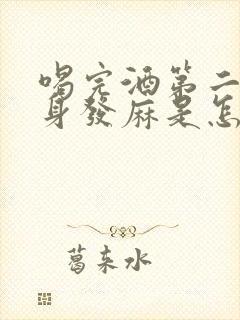 喝完酒第二
身發麻是怎
葛来水